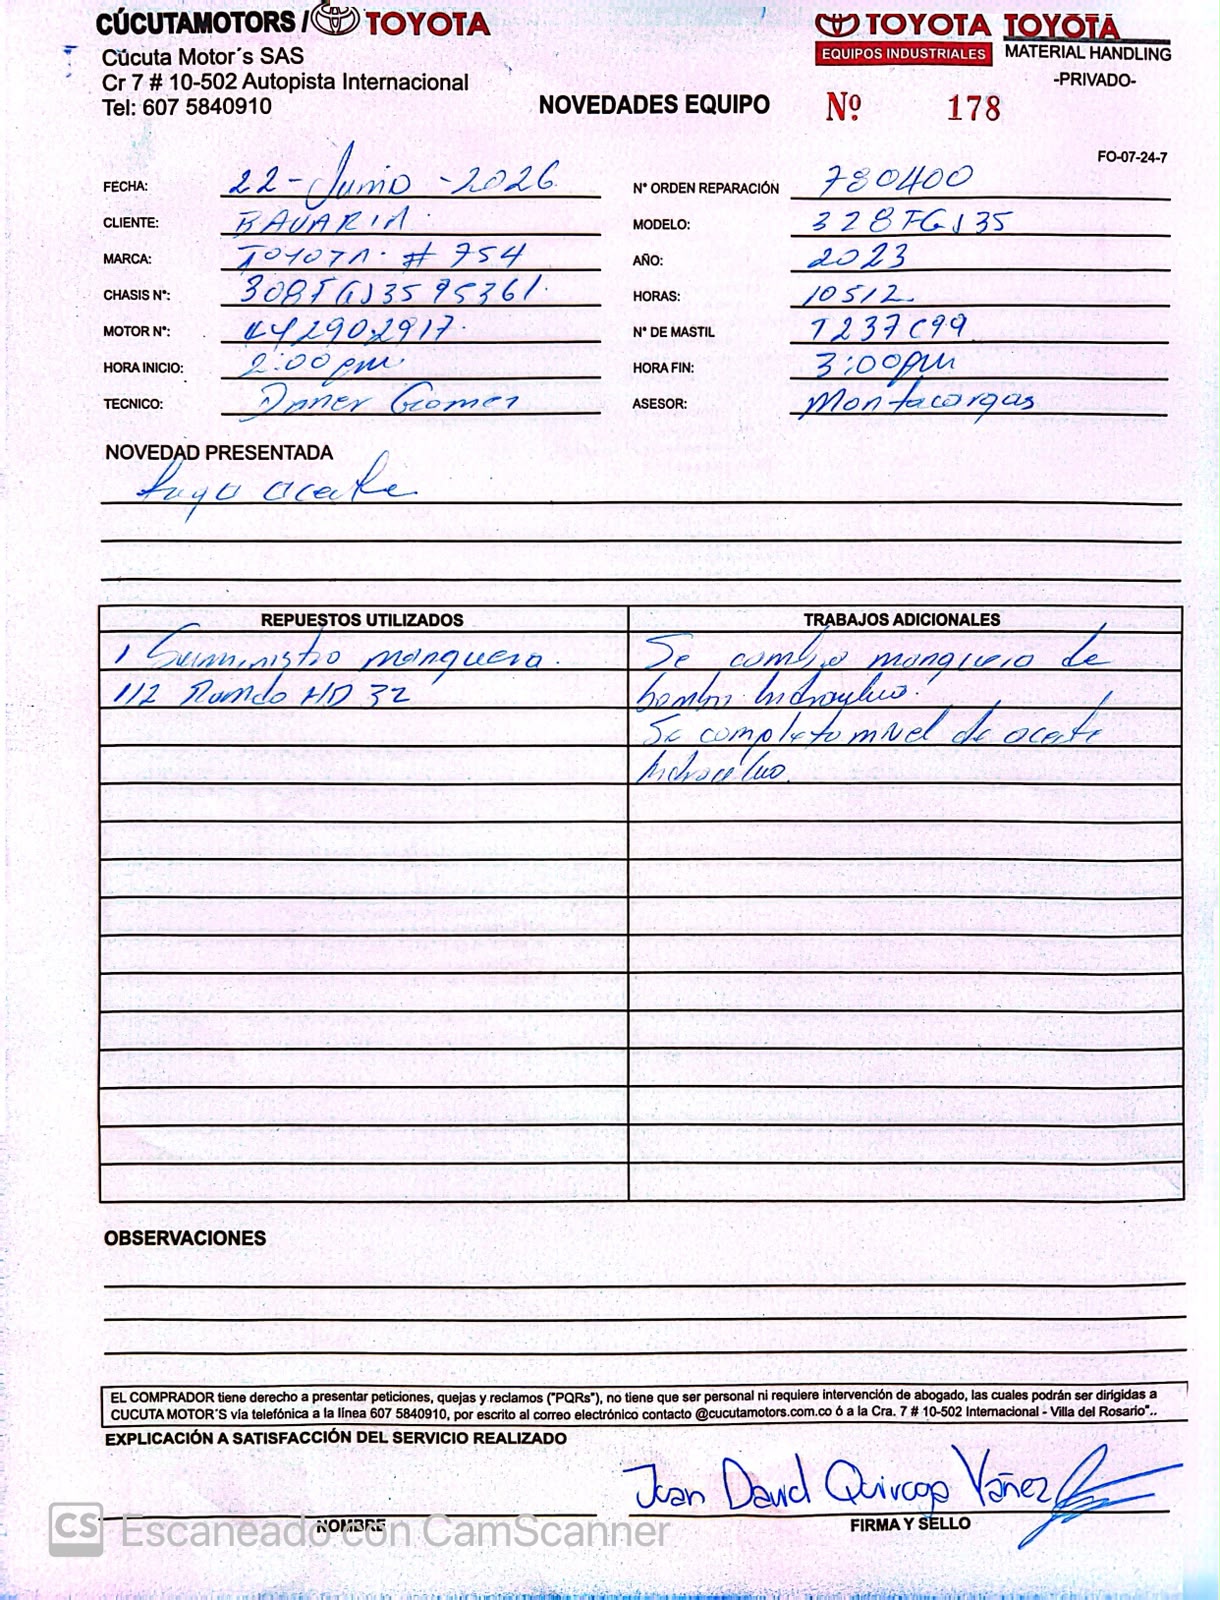 CÚCUTAMOTORS / TOYOTA
Cúcuta Motor´s SAS
Cr 7 # 10-502 Autopista Internacional
Tel: 607 5840910
TOYOTA
EQUIPOS INDUSTRIALES
TOYOTA
MATERIAL HANDLING
-PRIVADO-
NOVEDADES EQUIPO
Nº 178
FO-07-24-7
FECHA: 22-Junio-2026 N° ORDEN REPARACIÓN 780400
CLIENTE: BAVARIA. MODELO: 328FGJ35
MARCA: TOYOTA. # 754 AÑO: 2023
CHASIS N°: HORAS: 10512.
MOTOR N°: 442902917. N° DE MASTIL T237C99
HORA INICIO: 2:00 pm HORA FIN: 3:00pm
TECNICO: Gomez ASESOR: Montacargas
NOVEDAD PRESENTADA
fuga aceite
REPUESTOS UTILIZADOS TRABAJOS ADICIONALES
1 Suministro manguera. Se cambio manguera de
1/2 HD 32 bomba hidraulica.
Se completo nivel de aceite
hidraulico.
OBSERVACIONES
EL COMPRADOR tiene derecho a presentar peticiones, quejas y reclamos ("PQRs"), no tiene que ser personal ni requiere intervención de abogado, las cuales podrán ser dirigidas a
CUCUTA MOTOR´S vía telefónica a la línea 607 5840910, por escrito al correo electrónico contacto @cucutamotors.com.co ó a la Cra. 7 # 10-502 Internacional - Villa del Rosario"..
EXPLICACIÓN A SATISFACCIÓN DEL SERVICIO REALIZADO
Juan David Quiroga Yáñez
NOMBRE FIRMA Y SELLO
CS Escaneado con CamScanner